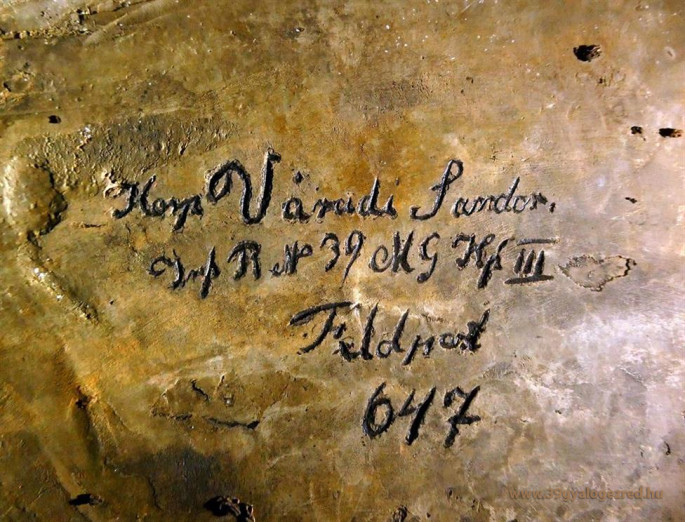 Korp Váradi Sandor.
Inf R N 39 M G Kp III
Feldpost
647
www.39gyalogezred.hu